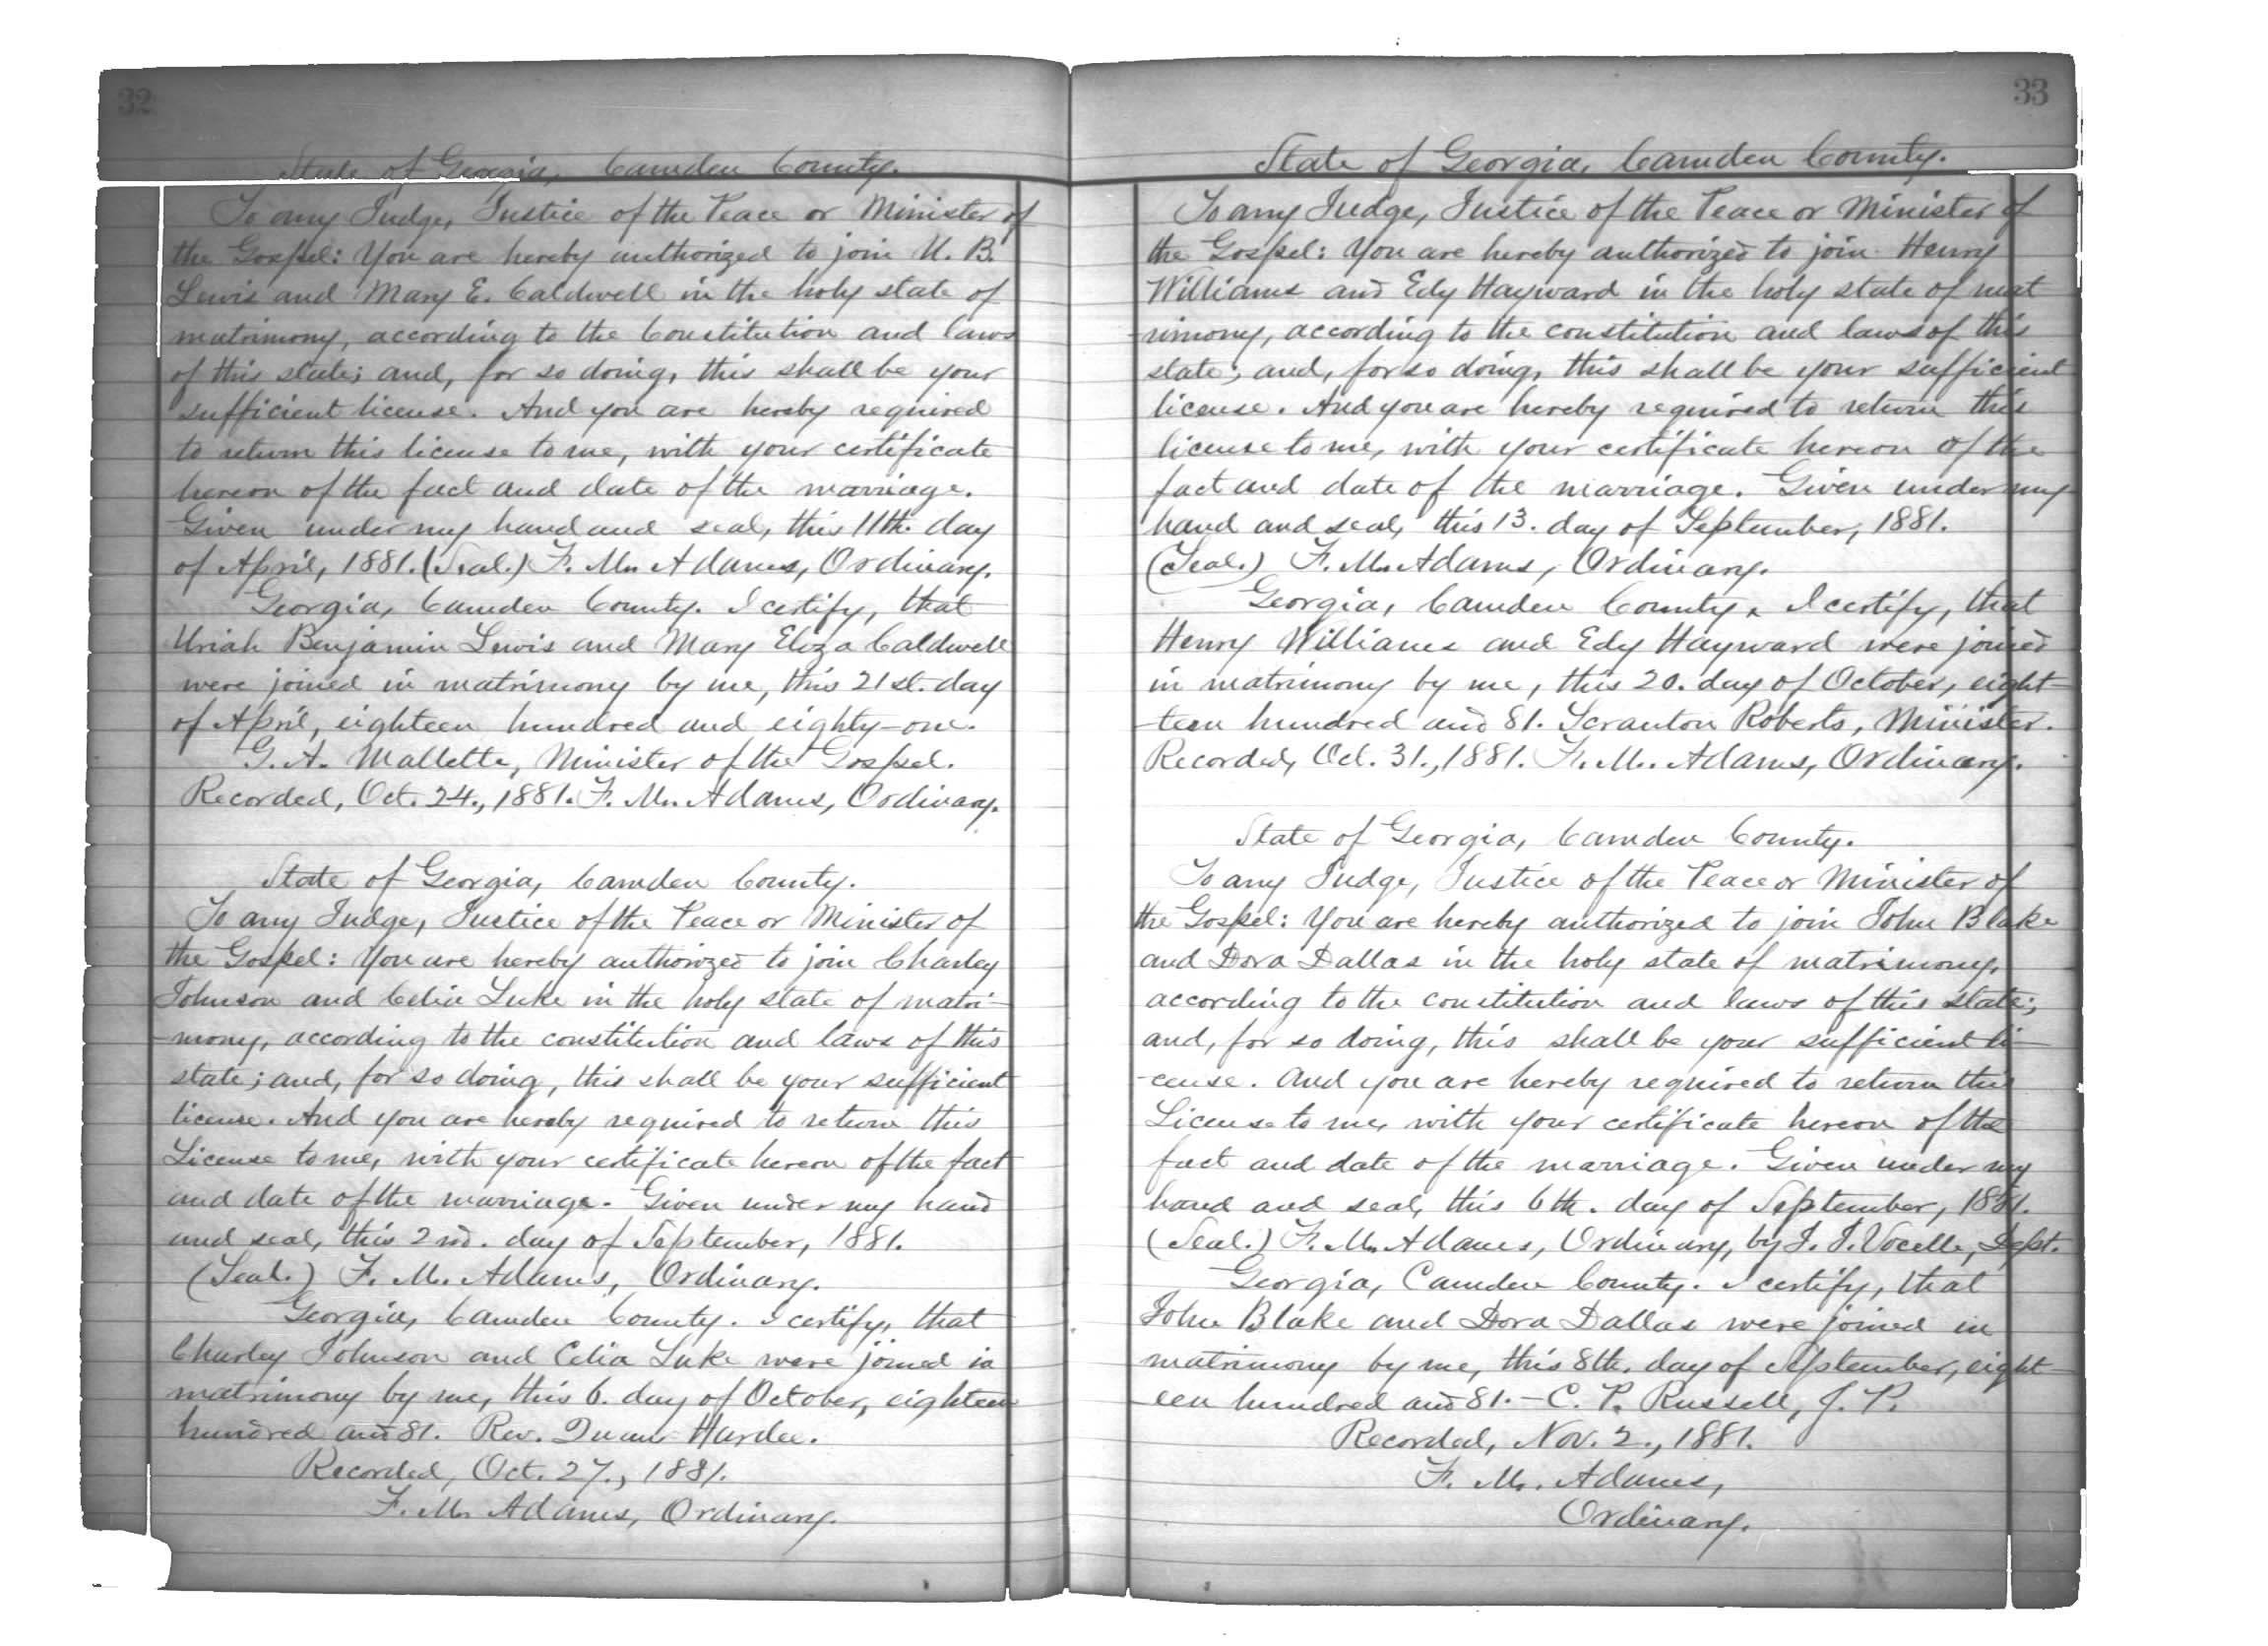 32
State of Georgia, Camden County.
To any Judge, Justice of the Peace or Minister of
the Gospel: You are hereby authorized to join U. B.
Lewis and Mary E. Caldwell in the holy state of
matrimony, according to the Constitution and laws
of this state; and, for so doing, this shall be your
sufficient license. And you are hereby required
to return this license to me, with your certificate
hereon of the fact and date of the marriage.
Given under my hand and seal, this 11th. day
of April, 1881. (Seal.) F. M. Adams, Ordinary.
Georgia, Camden County. I certify, that
Uriah Benjamin Lewis and Mary Eliza Caldwell
were joined in matrimony by me, this 21st. day
of April, eighteen hundred and eighty-one.
G. A. Mallette, Minister of the Gospel.
Recorded, Oct. 24., 1881. F. M. Adams, Ordinary.
State of Georgia, Camden County.
To any Judge, Justice of the Peace or Minister of
the Gospel: You are hereby authorized to join Charley
Johnson and Celia Luke in the holy state of matri-
mony, according to the constitution and laws of this
state; and, for so doing, this shall be your sufficient
license. And you are hereby required to return this
License to me, with your certificate hereon of the fact
and date of the marriage. Given under my hand
and seal, this 2nd. day of September, 1881.
(Seal.) F. M. Adams, Ordinary.
Georgia, Camden County. I certify, that
Charley Johnson and Celia Luke were joined in
matrimony by me, this 6. day of October, eighteen
hundred and 81. Rev. Hardee.
Recorded, Oct. 27., 1881.
F. M. Adams, Ordinary.
33
State of Georgia, Camden County.
To any Judge, Justice of the Peace or Minister of
the Gospel: You are hereby authorized to join Henry
Williams and Edy Hayward in the holy state of mat
-rimony, according to the constitution and laws of this
state; and, for so doing, this shall be your sufficient
license. And you are hereby required to return this
license to me, with your certificate hereon of the
fact and date of the marriage. Given under my
hand and seal, this 13. day of September, 1881.
(Seal.) F. M. Adams, Ordinary.
Georgia, Camden County. I certify, that
Henry Williams and Edy Hayward were joined
in matrimony by me, this 20. day of October, eight-
-teen hundred and 81. Scranton Roberts, Minister.
Recorded, Oct. 31., 1881. F. M. Adams, Ordinary.
State of Georgia, Camden County.
To any Judge, Justice of the Peace or Minister of
the Gospel: You are hereby authorized to join John Blake
and Dora Dallas in the holy state of matrimony,
according to the constitution and laws of this state;
and, for so doing, this shall be your sufficient li-
-cense. And you are hereby required to return this
License to me, with your certificate hereon of the
fact and date of the marriage. Given under my
hand and seal, this 6th. day of September, 1881.
(Seal.) F. M. Adams, Ordinary, by J. J. Vocelle, Dept.
Georgia, Camden County. I certify, that
John Blake and Dora Dallas were joined in
matrimony by me, this 8th. day of September, eight-
een hundred and 81. - C. P. Russell, J. P.
Recorded, Nov. 2., 1881.
F. M. Adams,
Ordinary.